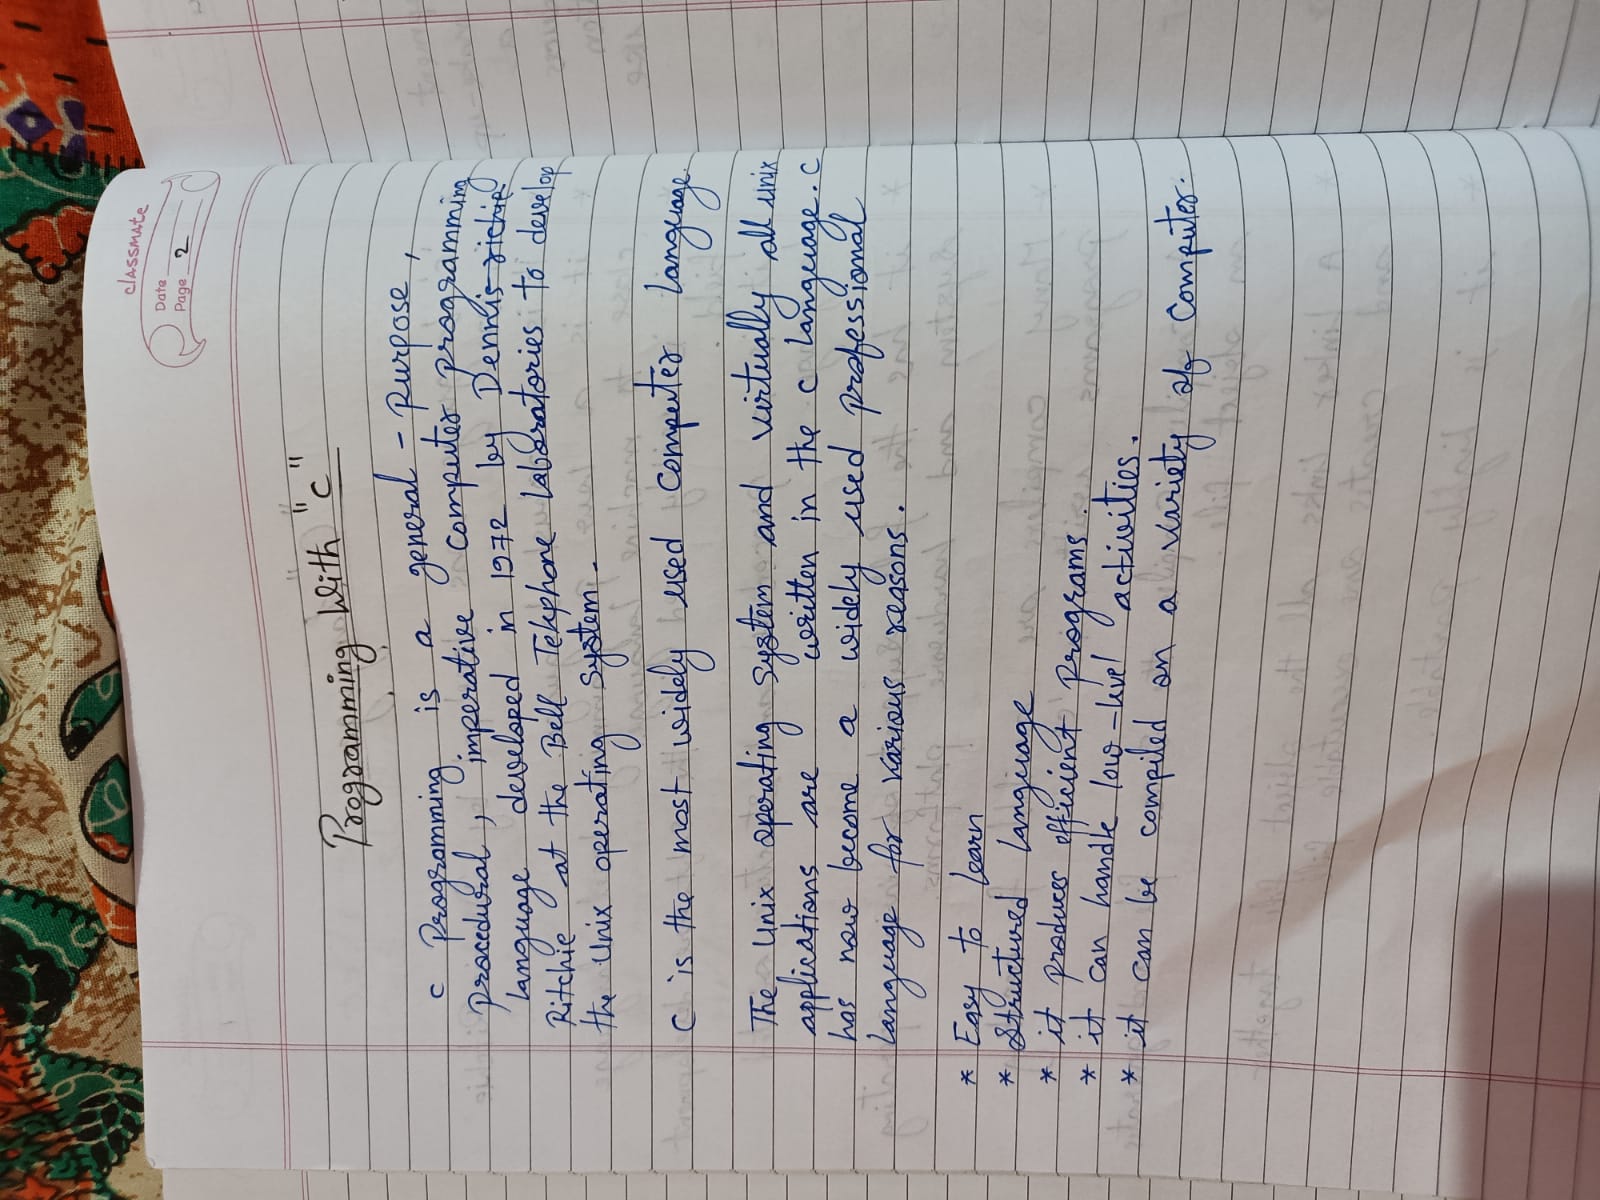 classmate
Date
Page 2
Programming With "C"
C Programming is a general - Purpose,
Procedural, imperative computer programming
language developed in 1972 by Dennis ritchie
Ritchie at the Bell Telephone laboratories to develop
the Unix operating system.
C is the most widely used computer language
The Unix operating system and virtually all unix
applications are written in the c language. C
has now become a widely used professional
language for various reasons.
* Easy to learn
* Structured language
* it produces efficient programs.
* it can handle low-level activities.
* it can be compiled on a variety of computer.